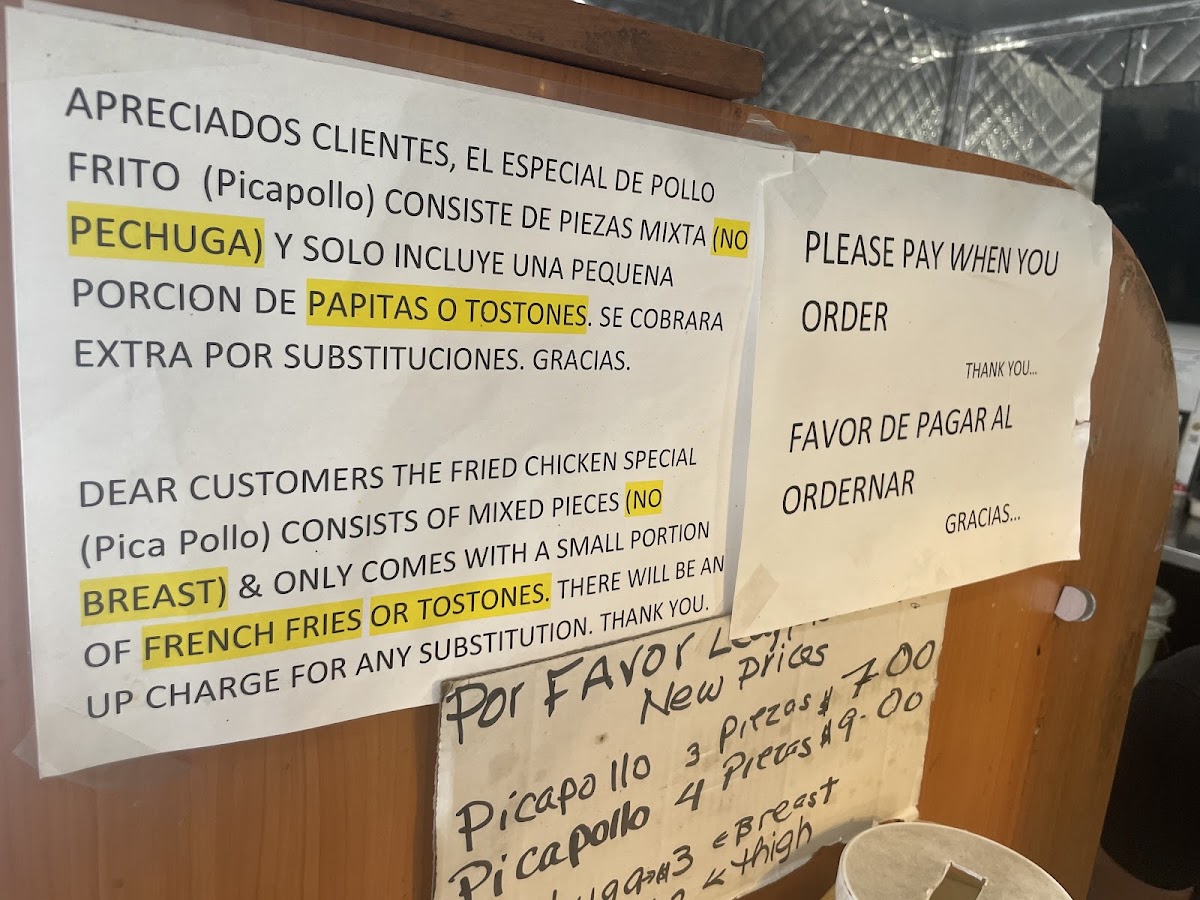 APRECIADOS CLIENTES, EL ESPECIAL DE POLLO
FRITO (Picapollo) CONSISTE DE PIEZAS MIXTA (NO
PECHUGA) Y SOLO INCLUYE UNA PEQUENA
PORCION DE PAPITAS O TOSTONES. SE COBRARA
EXTRA POR SUBSTITUCIONES. GRACIAS.
DEAR CUSTOMERS THE FRIED CHICKEN SPECIAL
(Pica Pollo) CONSISTS OF MIXED PIECES (NO
BREAST) & ONLY COMES WITH A SMALL PORTION
OF FRENCH FRIES OR TOSTONES. THERE WILL BE AN
UP CHARGE FOR ANY SUBSTITUTION. THANK YOU.
PLEASE PAY WHEN YOU
ORDER
THANK YOU...
FAVOR DE PAGAR AL
ORDERNAR
GRACIAS...
Por FAVOR
New Prices
Picapollo 3 Piezas $ 7.00
Picapollo 4 Piezas $9.00
$3 Breast
thigh